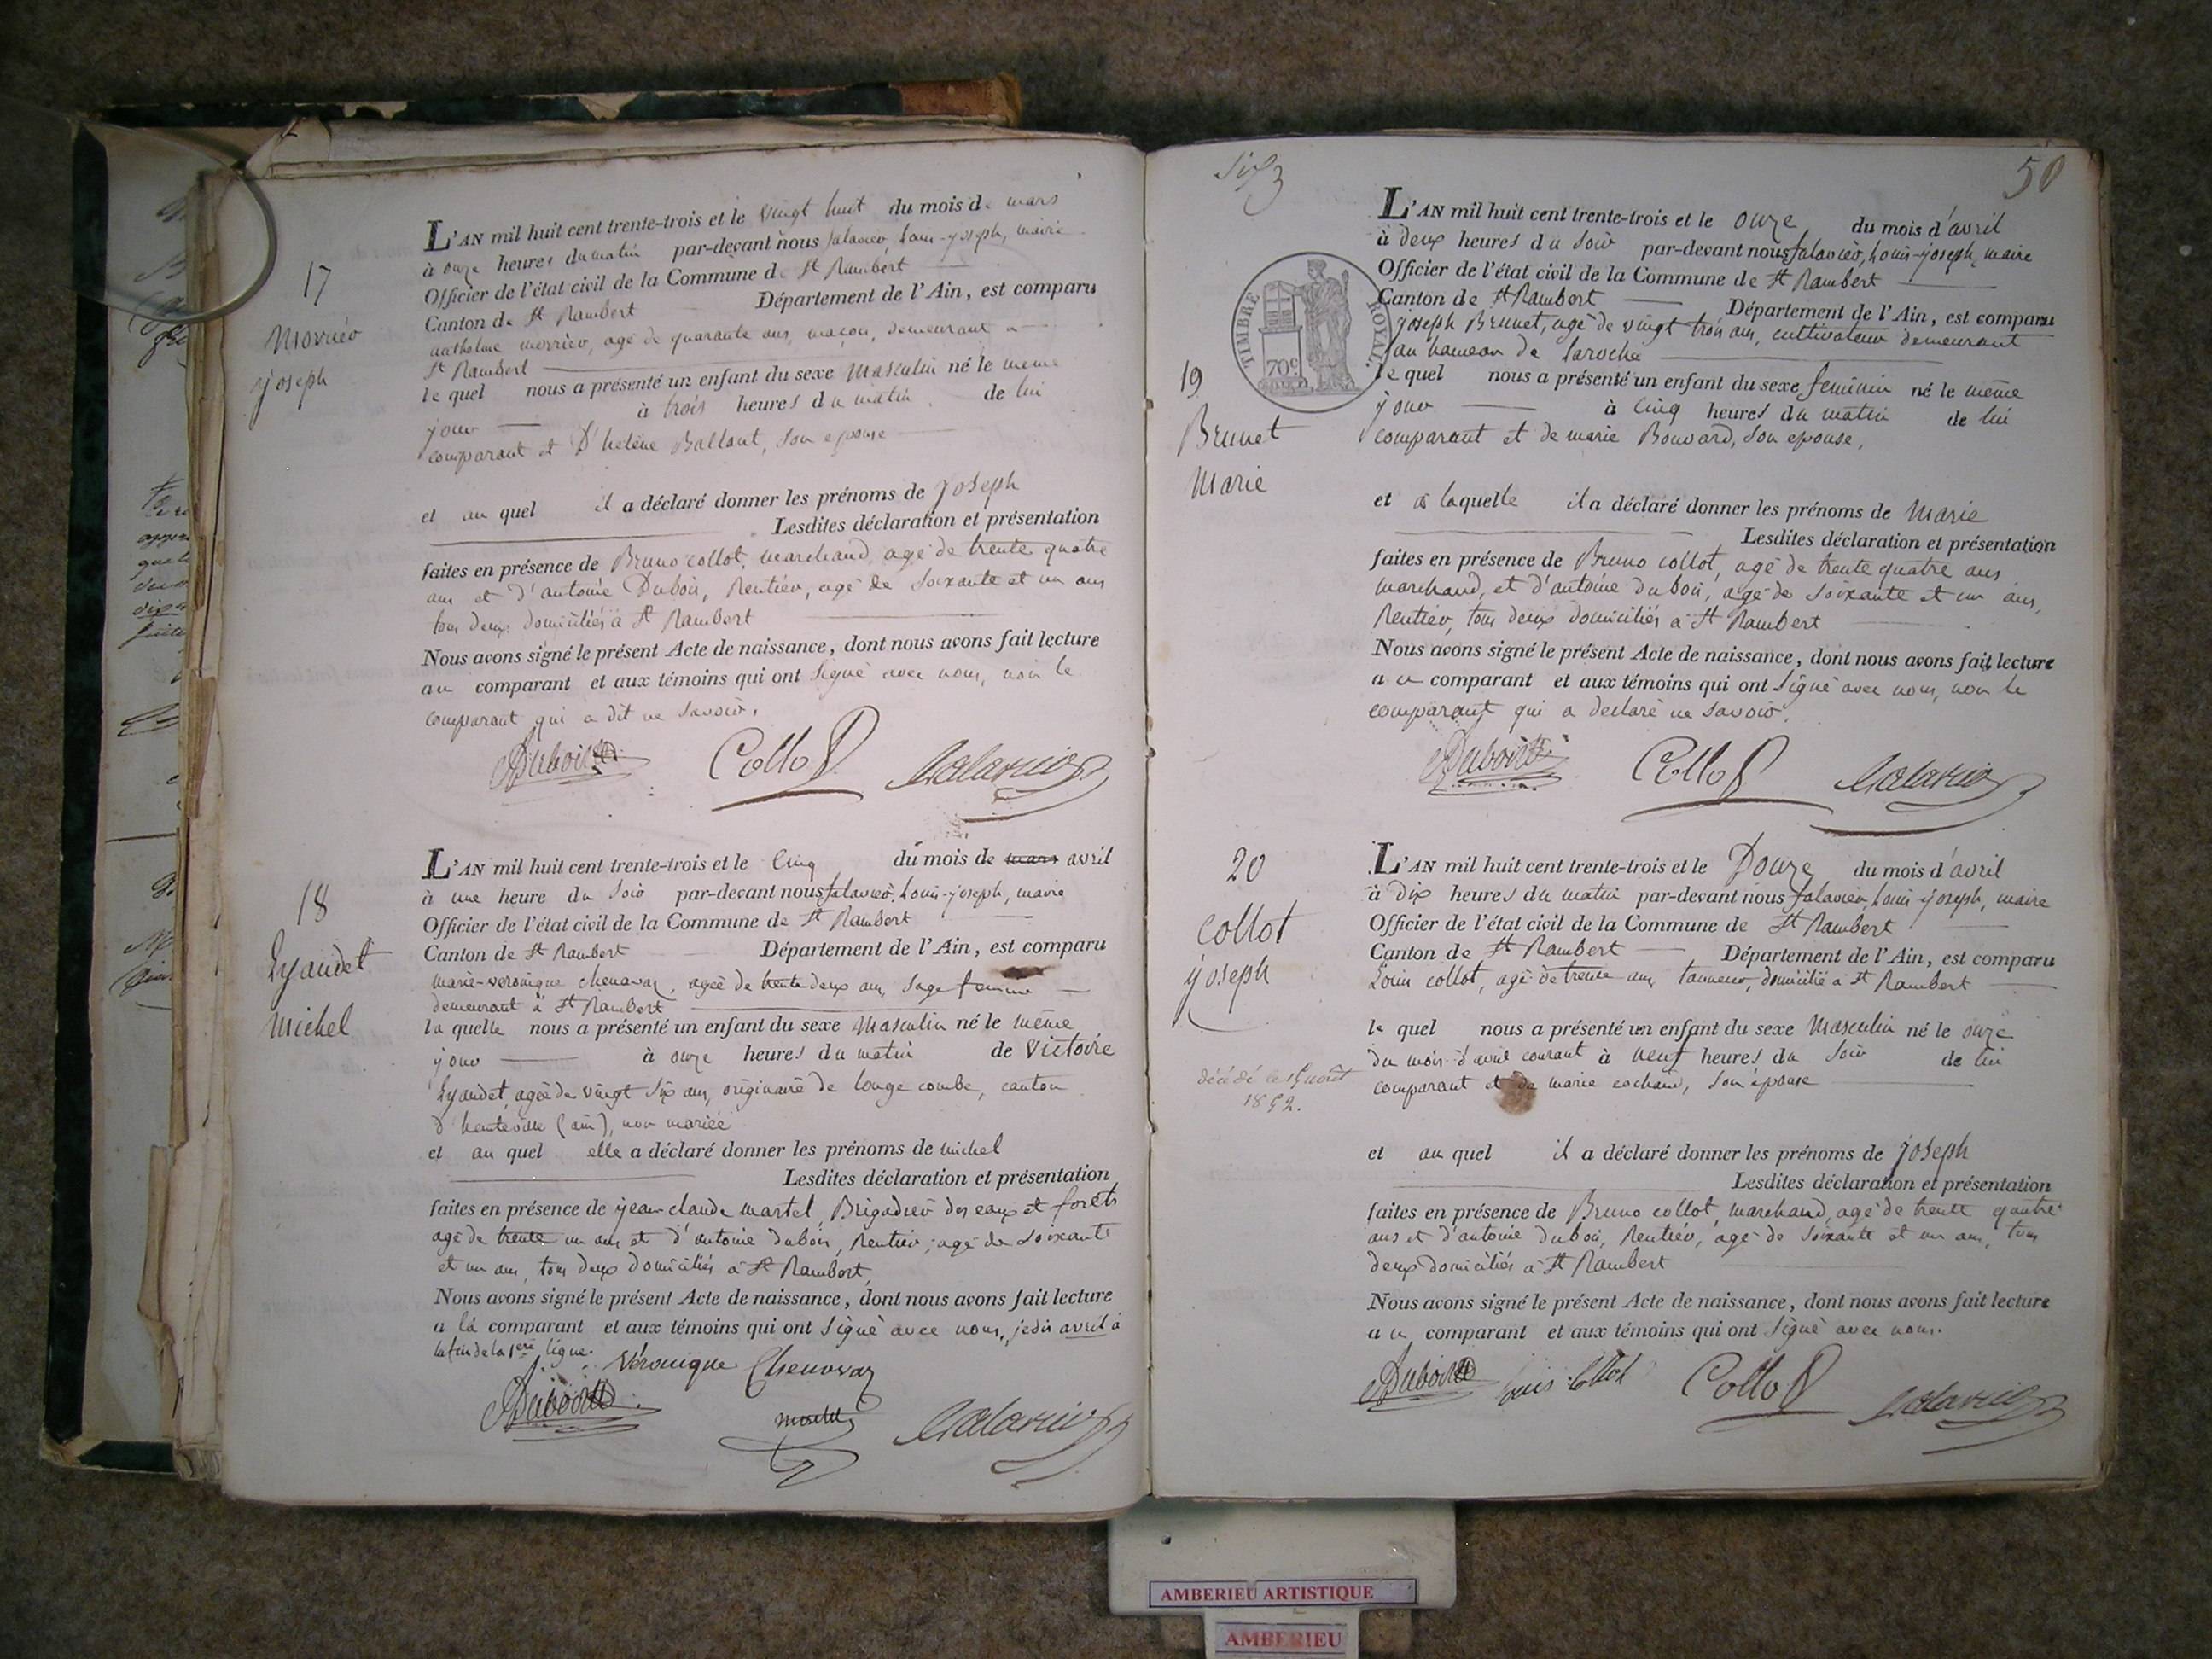 17
Morrier
joseph
L'AN mil huit cent trente-trois et le vingt huit du mois de mars
à onze heures du matin par-devant nous falavier, Louis-joseph, maire
Officier de l'état civil de la Commune de St Rambert
Canton de St Rambert Département de l'Ain, est comparu
anthelme morrier, agé de quarante ans, maçon, demeurant à
St Rambert
le quel nous a présenté un enfant du sexe Masculin né le meme
jour à trois heures du matin de lui
comparant et D' helène Ballant, son epouse
et au quel il a déclaré donner les prénoms de joseph
Lesdites déclaration et présentation
faites en présence de Bruno collot, marchand, agé de trente quatre
ans et d'antoine Dubois, Rentier, agé de Soixante et un ans
tous deux domiciliés à St Rambert
Nous avons signé le présent Acte de naissance, dont nous avons fait lecture
au comparant et aux témoins qui ont signé avec nous, non le
comparant qui a dit ne savoir.
Dubois Collot falavier
18
Lyaudet
michel
L'AN mil huit cent trente-trois et le Cinq du mois de mars avril
à une heure du soir par-devant nous falavier, Louis-joseph, maire
Officier de l'état civil de la Commune de St Rambert
Canton de St Rambert Département de l'Ain, est comparu
marie-veronique chenavaz, agée de trente deux ans, sage femme
demeurant à St Rambert
la quelle nous a présenté un enfant du sexe Masculin né le même
jour à onze heures du matin de Victoire
Lyaudet, agée de vingt six ans, originaire de longe combe, canton
d'hauteville (ain), non mariée
et au quel elle a déclaré donner les prénoms de michel
Lesdites déclaration et présentation
faites en présence de jean claude martel, Brigadier des eaux et forêts
agé de trente un ans et d'antoine dubois, Rentier, agé de soixante
et un ans, tous deux domiciliés à St Rambert,
Nous avons signé le présent Acte de naissance, dont nous avons fait lecture
a la comparant et aux témoins qui ont signé avec nous, je dis avril à
la fin de la 1ere ligne.
Véronique Chenavaz
Dubois martel falavier
Six
50
TIMBRE ROYAL
70c
19
Brunet
Marie
L'AN mil huit cent trente-trois et le onze du mois d'avril
à deux heures du soir par-devant nous falavier, Louis-joseph, maire
Officier de l'état civil de la Commune de St Rambert
Canton de St Rambert Département de l'Ain, est comparu
joseph Brunet, agé de vingt trois ans, cultivateur demeurant
au hameau de Laroche
le quel nous a présenté un enfant du sexe feminin né le même
jour à cinq heures du matin de lui
comparant et de marie Bouvard, son epouse,
et à laquelle il a déclaré donner les prénoms de Marie
Lesdites déclaration et présentation
faites en présence de Bruno collot, agé de trente quatre ans
marchand, et d'antoine dubois, agé de soixante et un ans,
Rentier, tous deux domiciliés à St Rambert
Nous avons signé le présent Acte de naissance, dont nous avons fait lecture
au comparant et aux témoins qui ont signé avec nous, non le
comparant qui a declaré ne savoir.
Dubois Collot falavier
20
collot
joseph
décédé le 15 août
1852.
L'AN mil huit cent trente-trois et le Douze du mois d'avril
à dix heures du matin par-devant nous falavier, Louis-joseph, maire
Officier de l'état civil de la Commune de St Rambert
Canton de St Rambert Département de l'Ain, est comparu
Louis collot, agé de trente ans, tanneur, domicilié à St Rambert
le quel nous a présenté un enfant du sexe Masculin né le onze
du mois d'avril courant à neuf heures du soir de lui
comparant et de marie cochard, son épouse
et au quel il a déclaré donner les prénoms de joseph
Lesdites déclaration et présentation
faites en présence de Bruno collot, marchand, agé de trente quatre
ans et d'antoine dubois, Rentier, agé de soixante et un ans, tous
deux domiciliés à St Rambert
Nous avons signé le présent Acte de naissance, dont nous avons fait lecture
au comparant et aux témoins qui ont signé avec nous.
Dubois louis collot Collot falavier
AMBERIEU ARTISTIQUE
AMBERIEU